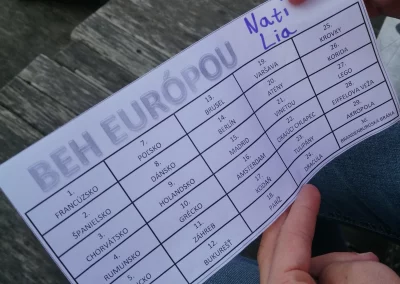 Nati
Lia
BEH EURÓPOU
1.
FRANCÚZSKO
2.
ŠPANIELSKO
3.
CHORVÁTSKO
4.
RUMUNSKO
5.
7.
POĽSKO
8.
DÁNSKO
9.
HOLANDSKO
10.
GRÉCKO
11.
ZÁHREB
12.
BUKUREŠŤ
13.
BRUSEL
14.
BERLÍN
15.
MADRID
16.
AMSTERDAM
17.
KODAŇ
18.
PARÍŽ
19.
VARŠAVA
20.
ATÉNY
21.
VINETOU
22.
CHLAPEC
23.
TULIPÁNY
24.
DRACULA
25.
KROVKY
26.
KORIDA
27.
LEGO
28.
EIFFELOVA VEŽA
29.
AKROPOLA
30.
BRANDENBURSKÁ BRÁNA